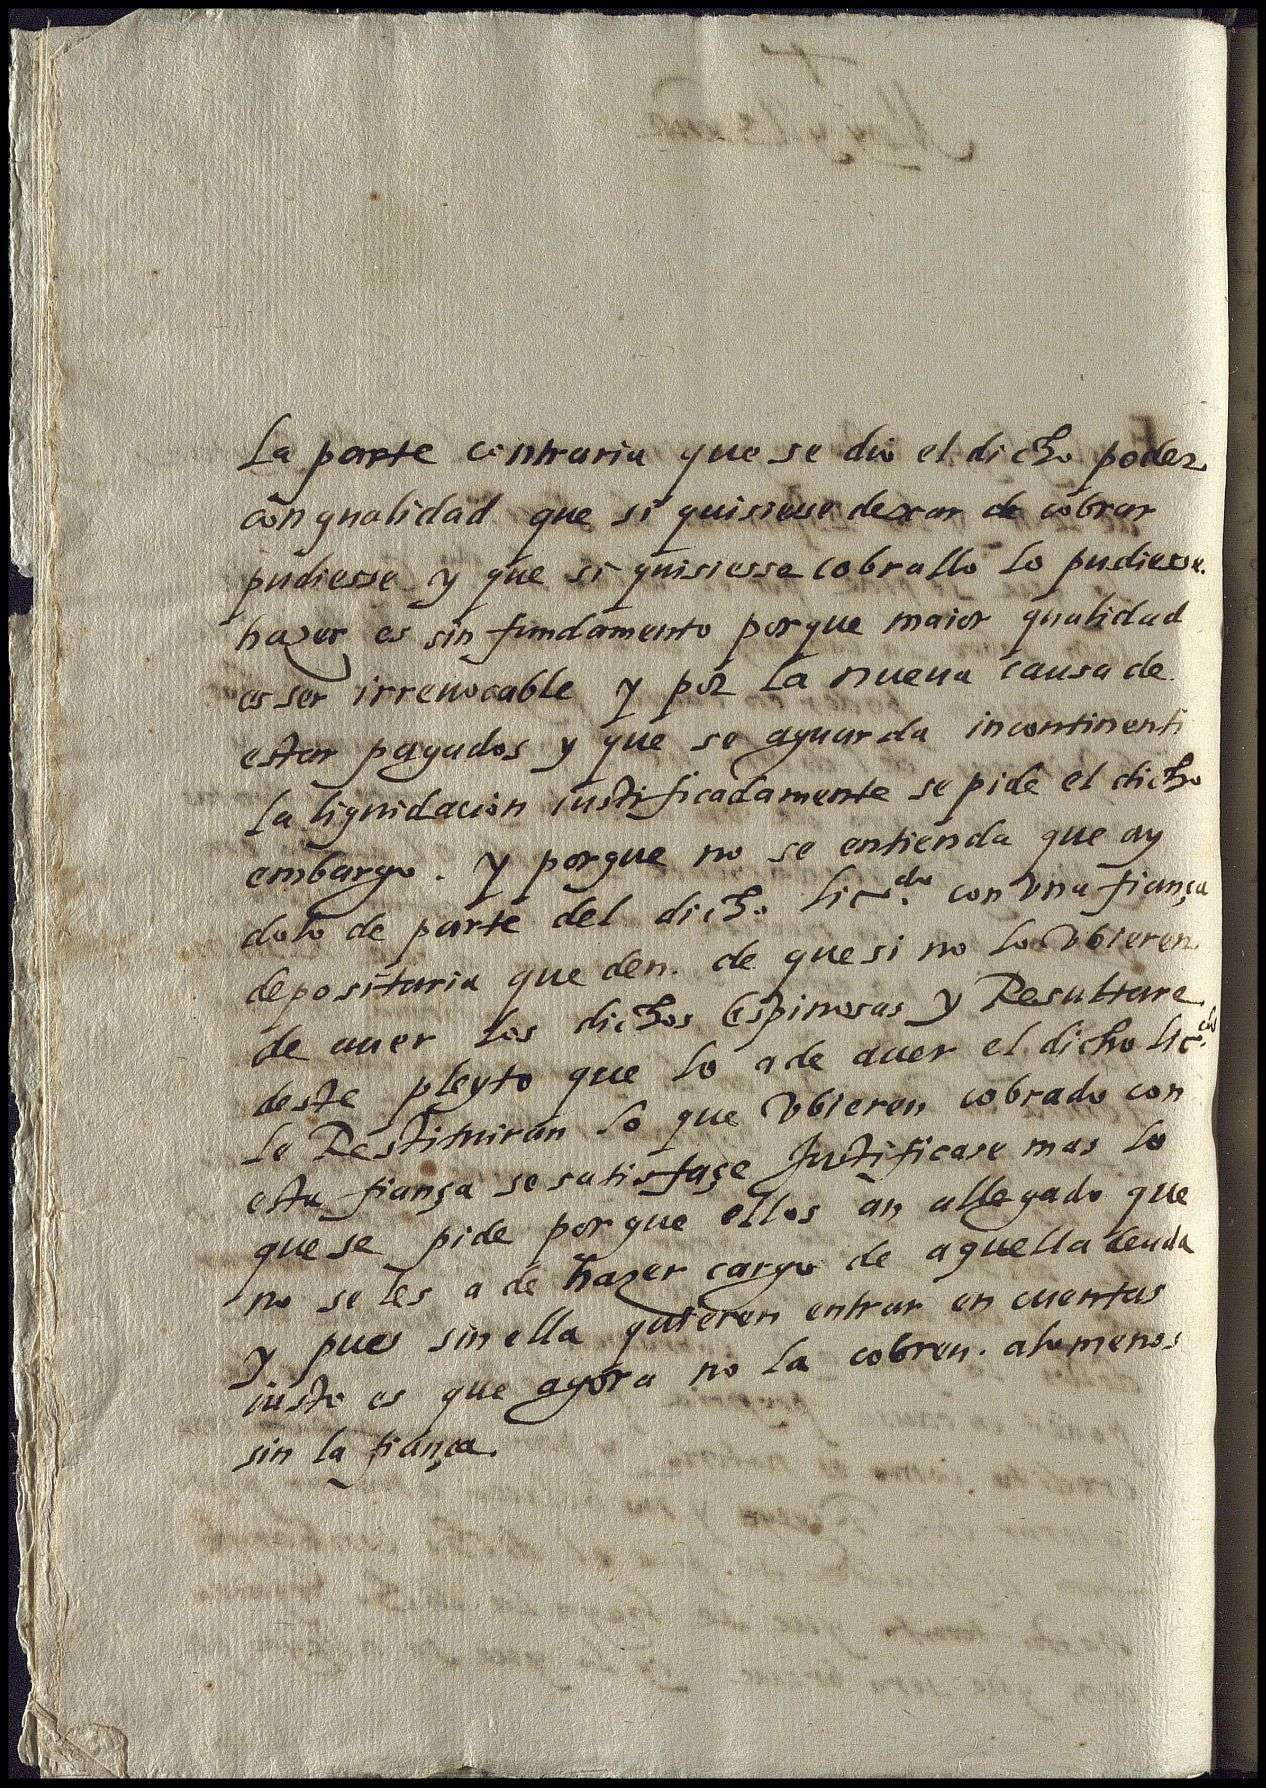 La parte contraria que se dio el dicho poder
con qualidad que si quisiesse dexar de cobrar
pudiesse y que si quisiesse cobrallo lo pudiesse
hazer es sin fundamento porque maior qualidad
es ser irreuocable y por la nueua causa de
estar pagados y que se aguarda incontinenti
la liquidacion iustificadamente se pide el dicho
embargo. y porque no se entienda que ay
dolo de parte del dicho licdo. con vna fiança
depositaria que den. de que si no lo vbieren
de auer los dichos Espinosas y Resultare
deste pleyto que lo a de auer el dicho licdo.
le Restituiran lo que vbieren cobrado con
esta fiança se satisfaçe Justificase mas lo
que se pide porque ellos an allegado que
no se les a de hazer cargo de aquella deuda
y pues sin ella quieren entrar en cuentas
iusto es que agora no la cobren. alomenos
sin la fiança.